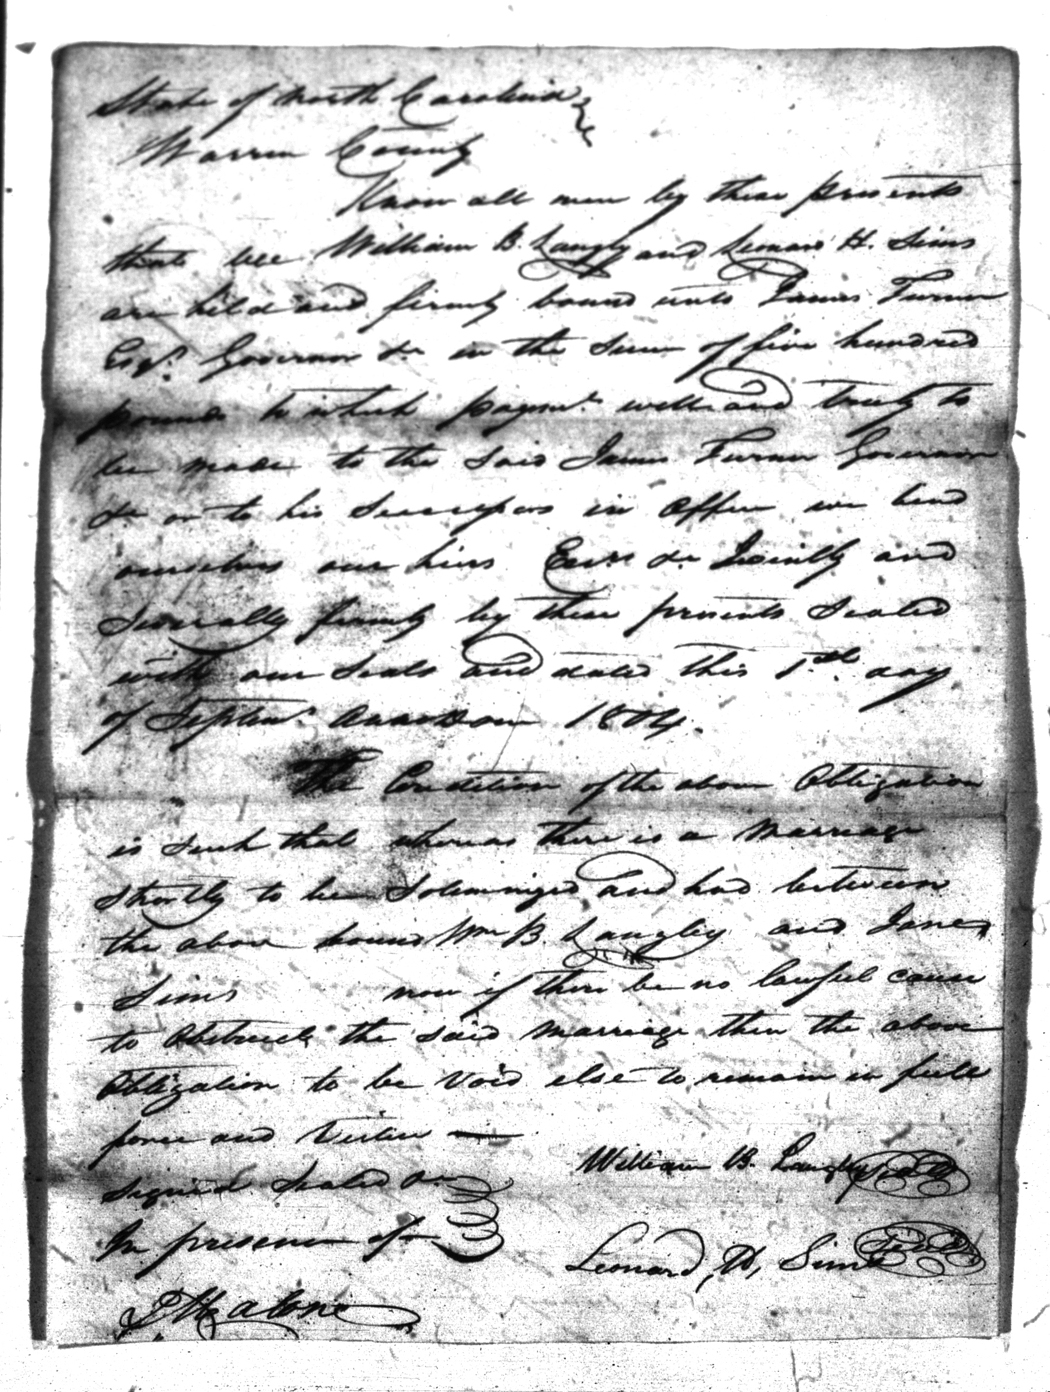 State of North Carolina
Warren County
Know all men by these presents
that we William B. Langly and Leonard H. Sims
are held and firmly bound unto James Turner
Esqr. Governor &c in the sum of five hundred
pounds to which paymt. well and truly to
be made to the said James Turner Governor
&c or to his Successors in Office we bind
ourselves our heirs Exrs &c Jointly and
Severally firmly by these presents Sealed
with our Seals and dated this 1st. day
of Septemr. Anno Dom 1804.
The Condition of the above Obligation
is such that whereas there is a Marriage
shortly to be Solemnized and had between
the above bound Wm B Langley and Jane
Sims now if there be no lawful cause
to Obstruct the said Marriage then the above
Obligation to be Void else to remain in full
force and Virtue —
Signed Sealed &c
In presence of
William B. Langley Seal
Leonard, H, Sims Seal
Malone